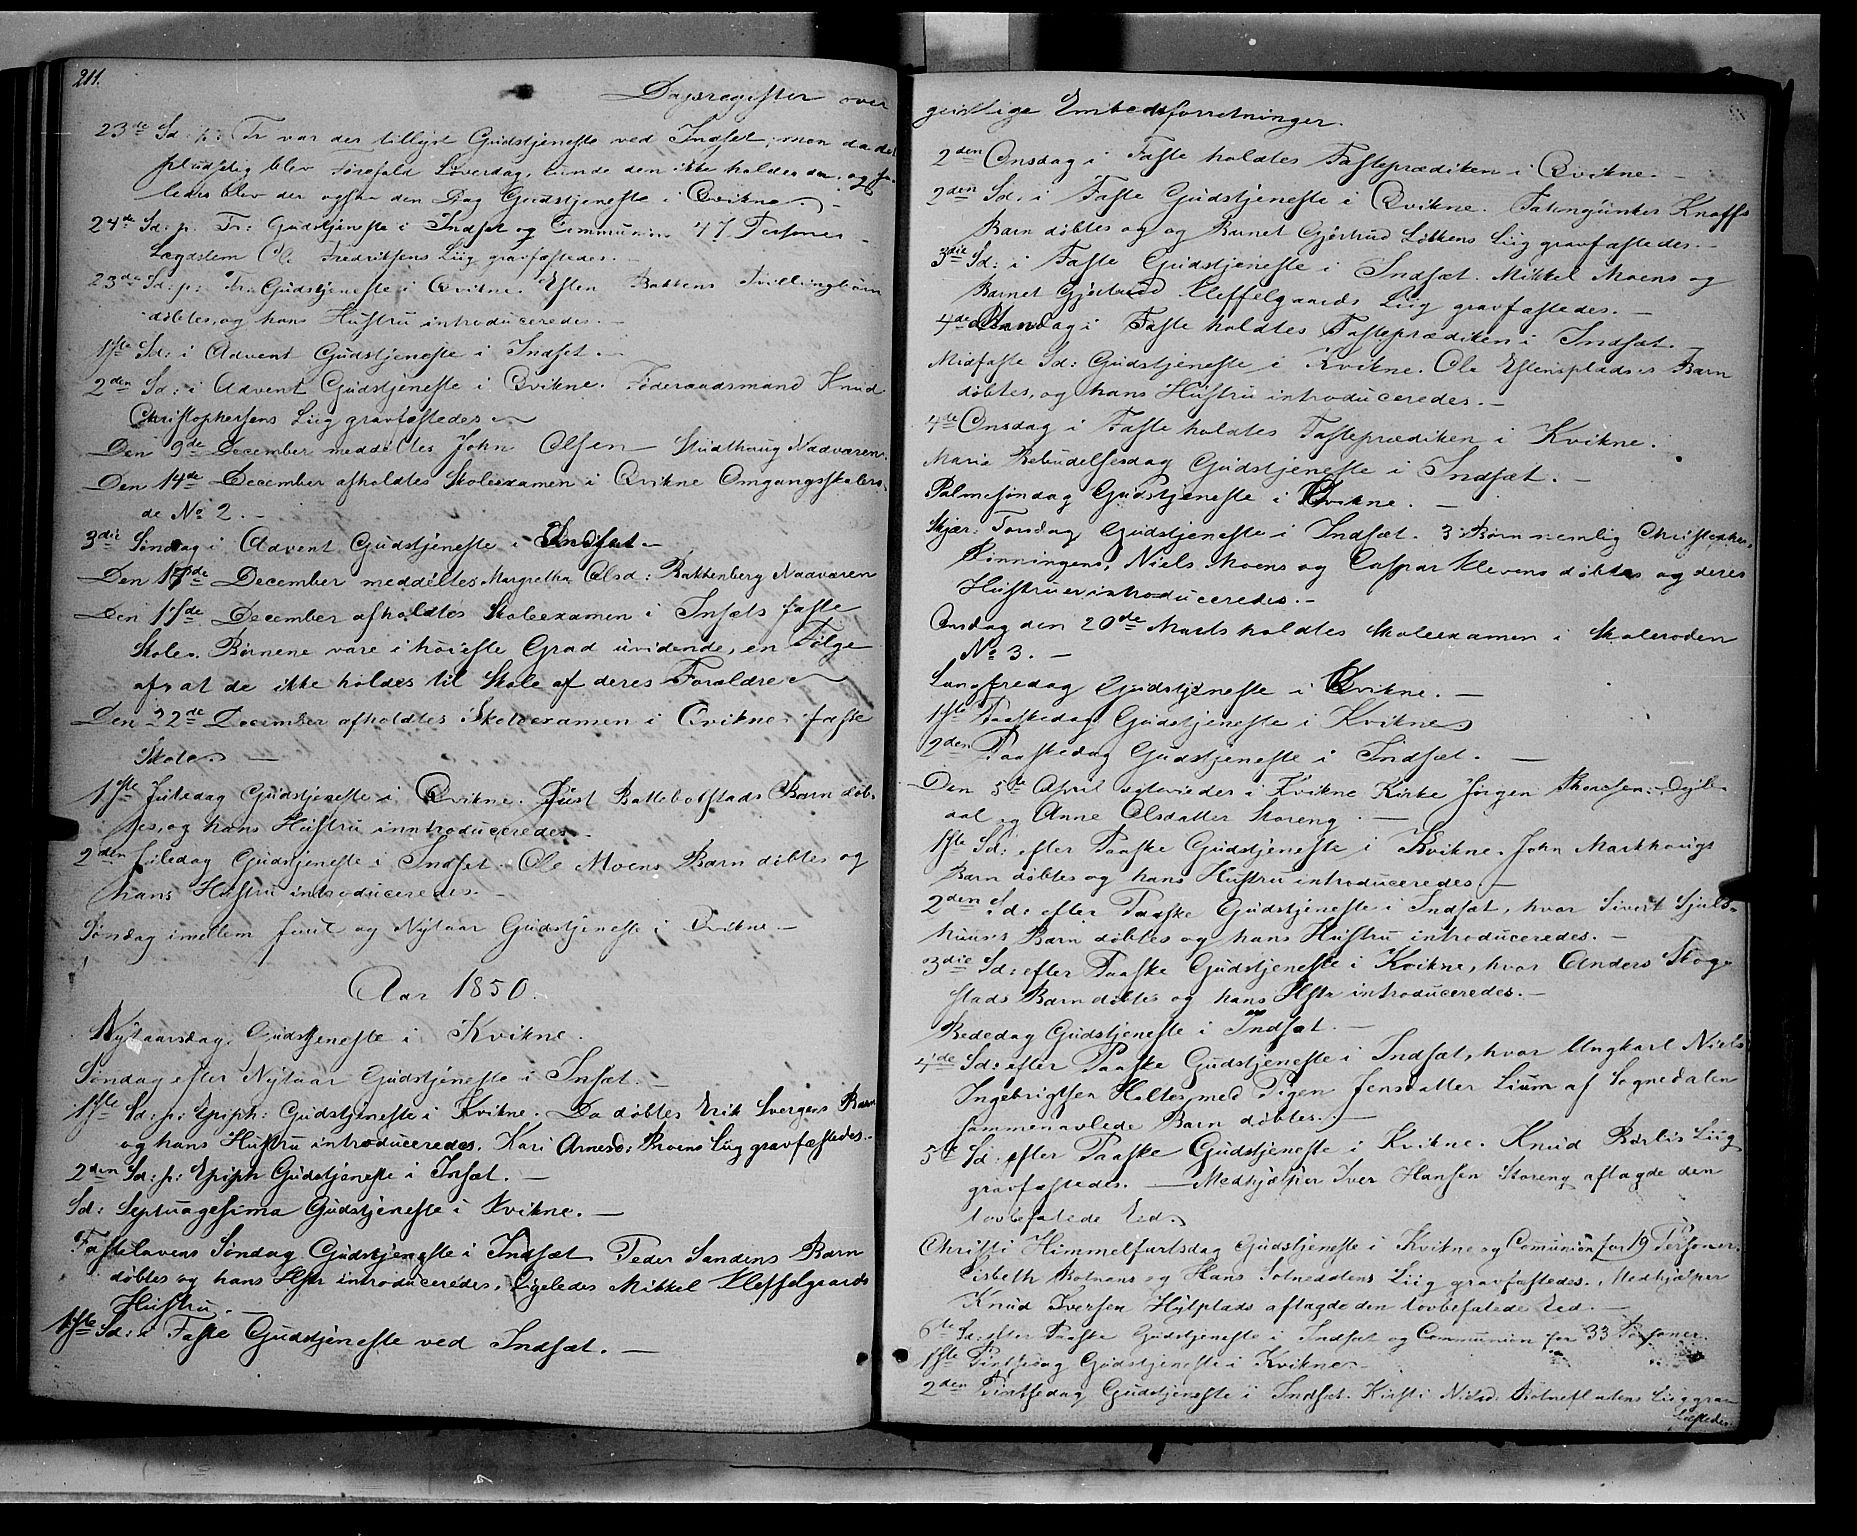 211.
Dagsregister over
23de Sd: p: Tr var der tillyst Gudstjeneste ved Indset, men da det
pludselig blev Førefald Løverdag, kunde den ikke holdes der, og så-
ledes blev der ogsaa den Dag Gudstjeneste i Qvikne. –
24de Sd: p. Tr: Gudstjeneste i Indset og Communion 47 Personer –
Lægdslem Ole Fredriksens Liig gravfæstedes. –
23de Sd: p: Tr: Gudstjeneste i Qvikne. Esten Bakkens Tvillingbørn
døbtes, og hans Hustru introduceredes. –
1ste Sd: i Advent Gudstjeneste i Indset. –
2den Sd: i Advent Gudstjeneste i Qvikne. Føderaadsmand Knud
Christophersens Liig gravfæstedes –
Den 9de December meddeltes John Olsen Studthaug Nadveren.
Den 14de December afholdtes Skoleexamen i Qvikne Omgangsskolero-
de No 2. –
3die Søndag i Advent Gudstjeneste i Indset –
Den 17de December meddeltes Margretha Olsd: Bakkenberg Nadveren
Den 1ste December afholdtes Skoleexamen i Insets faste
Skole. Børnene vare i høieste Grad uvidende, en Følge
af, at de ikke holdes til Skole af deres Forældre –
Den 22de December afholdtes Skoleexamen i Qvikne faste
Skole. –
1ste Juledag Gudstjeneste i Qvikne. Just Battebolstads Barn døb-
tes, og hans Hustru inntroduceredes. –
2den Juledag Gudstjeneste i Indset. Ole Moens Barn døbtes og
hans Hustru introduceredes. –
Søndag imellem Juul og Nytaar Gudstjeneste i Qvikne –
Aar 1850.
Nytaarsdag Gudstjeneste i Kvikne.
Søndag efter Nytaar Gudstjeneste i Inset. –
1ste Sd: p: Epiph: Gudstjeneste i Kvikne. Da døbtes Erik Svergens Barn
og hans Hustru introduceredes. Kari Arnesd: Moens Liig gravfæstedes.
2den Sd: p: Epiph Gudstjeneste i Inset. –
Sd: Septuagesima Gudstjeneste i Kvikne. –
Fastelavens Søndag Gudstjeneste i Indset Peder Sandens Barn
døbtes og hans Hstr introduceredes, ligeledes Mikkel Kleffelgaards
Hustru. –
1ste Sd: i Faste Gudstjeneste ved Indset. –
geistlige Embedsforretninger.
2den Onsdag i Faste holdtes Fasteprædiken i Qvikne. –
2den Sd: i Faste Gudstjeneste i Qvikne. Fatengunker Knoffs
Barn døbtes og og Barnet Gjertrud Løkkens Liig gravfæstedes. –
3die Sd: i Faste Gudstjeneste i Indset. Mikkel Moens og
Barnet Gjertrud Kleffelgaards Liig gravfæstedes. –
4de Onsdag i Faste holdtes Fasteprædiken i Indset. –
Midfaste Sd: Gudstjeneste i Kvikne. Ole Estensplads's Barn
døbtes, og hans Hustru introduceredes. –
4de Onsdag i Faste holdtes Fasteprædiken i Kvikne.
Maria Bebudelsesdag Gudstjeneste i Indset. –
Palmesøndag Gudstjeneste i Qvikne. –
Skjær-Torsdag Gudstjeneste i Indset. 3 Børn nemlig Christopher
Rønningens, Niels Moens og Caspar Klevens døbtes og deres
Hustruer introduceredes. –
Onsdag den 20de Marts holdtes Skoleexamen i Skoleroden
No 3. –
Langfredag Gudstjeneste i Kvikne. –
1ste Paaskedag Gudstjeneste i Kvikne
2den Paaskedag Gudstjeneste i Indset. –
Den 5te April egteviedes i Kvikne Kirke Jørgen Thoresen Dejle-
aal og Anne Olsdatter Storeng. –
1ste Sd: efter Paaske Gudstjeneste i Kvikne. John Markhougs
Barn døbtes og hans Hustru introduceredes –
2den Sd: efter Paaske Gudstjeneste i Indset, hvor Sivert Sjuls-
huus's Barn døbtes og hans Hustru introduceredes. –
3die Sd: efter Paaske Gudstjeneste i Kvikne, hvor Anders Skog-
stads Barn døbtes og hans Hstr introduceredes. –
Bededag Gudstjeneste i Indset. –
4de Sd: efter Paaske Gudstjeneste i Indset, hvor Ungkarl Niels
Ingebrigtsen Holtes, med Pigen Jensdatter Lium af Sognedalen
sammenavlede Barn døbtes. –
5te Sd: efter Paaske Gudstjeneste i Kvikne. Knud Børlis Liig
gravfæstedes. – Medhjælper Iver Hansen Storeng aflagde den
lovbefalede Eed.
Christi Himmelfartsdag Gudstjeneste i Kvikne og Comunion for 19 Personer.
Lisbeth Botnens og Hans Sotneddens Liig gravfæstedes. Medhjælper
Knud Iversen Hylplads aflagde den lovbefalede Eed. –
6te Sd: efter Paaske Gudstjeneste i Indset og Communion for 33 Personer.
1ste Pintsedag Gudstjeneste i Kvikne –
2den Pintsedag Gudstjeneste i Indset. Kirsti Nilsd: Botnesletens Liig grav-
fæstedes